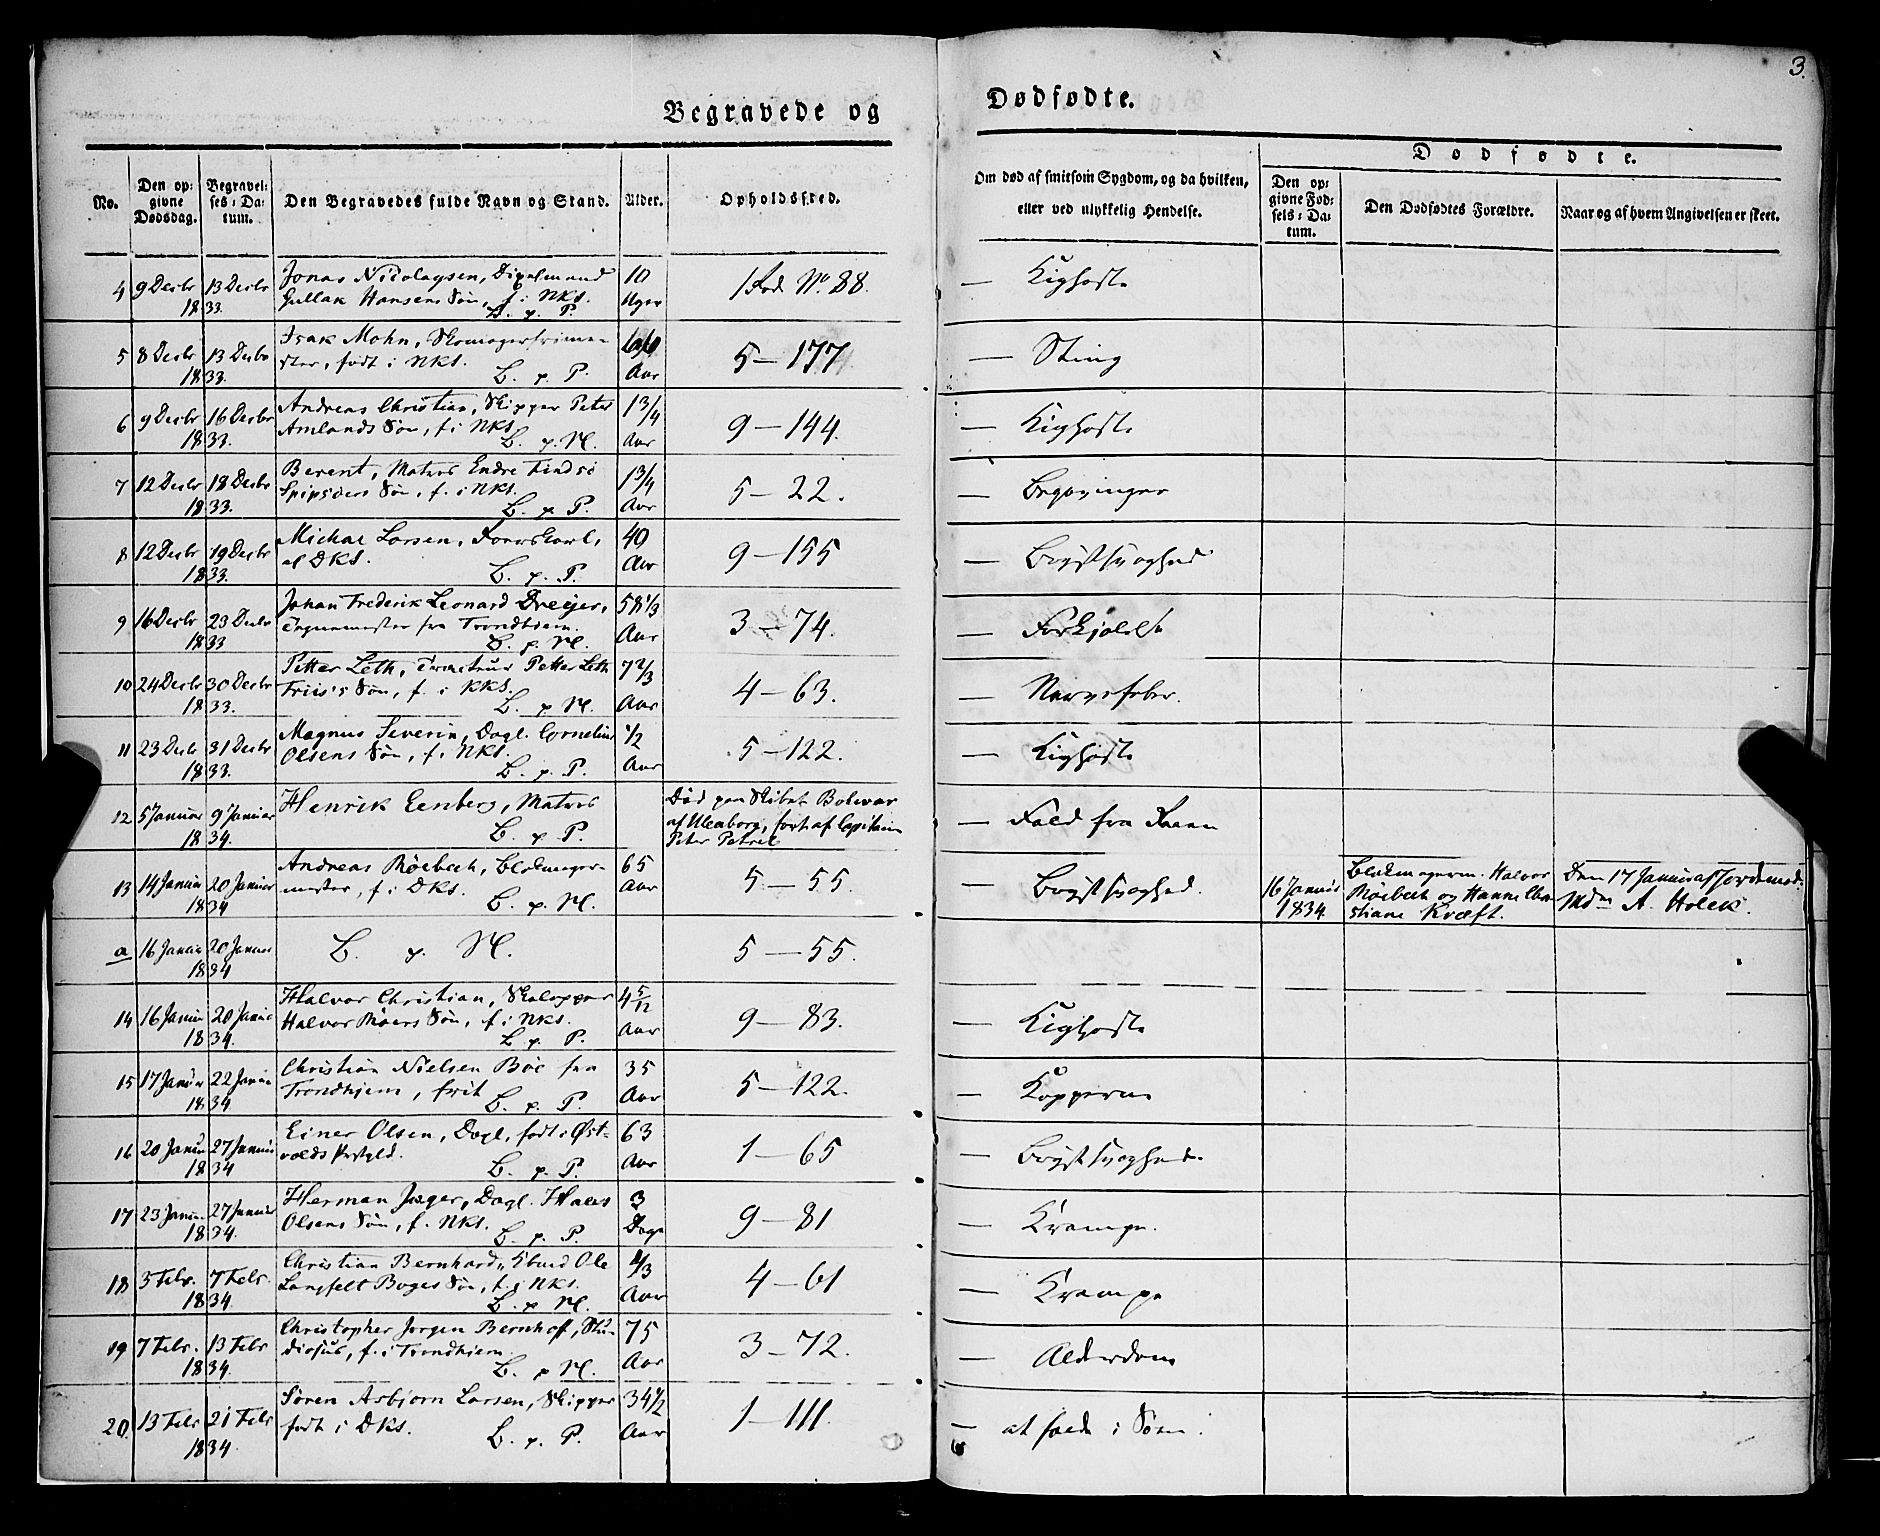 3.
Begravede og Dødfødte.
No.
Den op-
givne
Dødsdag.
Begravel-
ses-Da-
tum.
Den Begravedes fulde Navn og Stand.
Alder.
Opholdssted.
Om død af smitsom Sygdom, og da hvilken,
eller ved ulykkelig Hendelse.
Dødfødte.
Den op-
givne Fød-
sels-Da-
tum.
Den Dødfødtes Forældre.
Naar og af hvem Angivelsen er skeet.
4 9 Decbr 13 Decbr Jonas Nicolaysen, 10 1 Rod No. 88.
1833. Gullak Hansens Søn, f. i NKS. Uger
B. p. P.
— Kighoste
5 8 Decbr 13 Decbr Isak Mohn, 5 — 177
1833. ster, født i NKS. B. p. P. Aar
— Sting
6 9 Decbr 16 Decbr Andreas Christian, Skipper Peter 1 3/4 9 — 144.
1833. Amlands Søn, f. i NKS. B. p. N. Aar
— Kighoste
7 12 Decbr 18 Decbr Berent, Matros Endre 1 3/4 5 — 22.
1833. Søn, f. i NKS. B. p. P. Aar
8 12 Decbr 19 Decbr Larsen, 40 9 — 155
1833. DKS. B. p. P. Aar
— Brystsvaghed
9 16 Decbr 23 Decbr Johan Frederik Leonard Dreijer, 58 1/3 3 — 74.
1833 fra Trondhiem. B. p. N. Aar
— Forkjølelse
10 24 Decbr 30 Decbr Petter Leth, Petter Leth 7 2/3 4 — 63.
1833. Friis's Søn, f. i KKS. B. p. N. Aar
— Nervefeber.
11 23 Decbr 31 Decbr Magnus Severin, Dagl. Cornelius 1/2 5 — 122.
1833. Olsens Søn, f. i NKS. B. p. P. Aar
— Kighoste
12 5 Januar 9 Januar Henrik Eenberg, Matros
1834. B. p. P.
Død paa Skibet Bolivar
af Uleaborg, ført af Capitain
Peter
— Fald fra Raaen
13 14 Januar 20 Januar Andreas Röebech, Blokmager- 65 5 — 55.
1834 mester, f. i DKS. B. p. N. Aar
— Brystsvaghed.
16 Januar
1834.
Blokmagerm. Halvor
Röebech og Hanne Chri-
stiane Kræft.
Den 17 Januar af Jordemod.
Mdm A. Holck.
a 16 Januar 20 Januar B. p. N. 5 — 55.
1834
14 16 Januar 20 Januar Halvor Christian, 4 5/12 9 — 83.
1834. Halvor Röers Søn, f. i NKS. B. p. P. Aar
— Kighoste
15 17 Januar 22 Januar Christian Nielsen Böe fra 35 5 — 122.
1834 Trondhjem, B. p. P. Aar
— Kopperne
16 20 Januar 27 Januar Einer Olsen, Dagl, født i Øst- 63 1 — 65
1834 volds B. p. P. Aar
— Brystsvaghed.
17 23 Januar 27 Januar Herman Jæger, Dagl. 3 9 — 81
1834. Olsens Søn, f. NKS. B. p. P. Dage
— Krampe.
18 3 Febr. 7 Febr. Christian Bernhard, Ole 1/3 4 — 61
1834. Langfelt Boges Søn, f. i NKS. B. p. N. Aar
— Krampe
19 7 Febr. 13 Febr Christopher Jørgen Bernhoft, Stu- 75 3 — 72.
1834. diosus, f. i Trondhiem. B. p. N. Aar
— Alderdom
20. 13 Febr 21 Febr Søren Asbjørn Larsen, Skipper 34 1/2 1 — 111.
1834. født i DKS. B. p. P. Aar
— at falde i Søen.